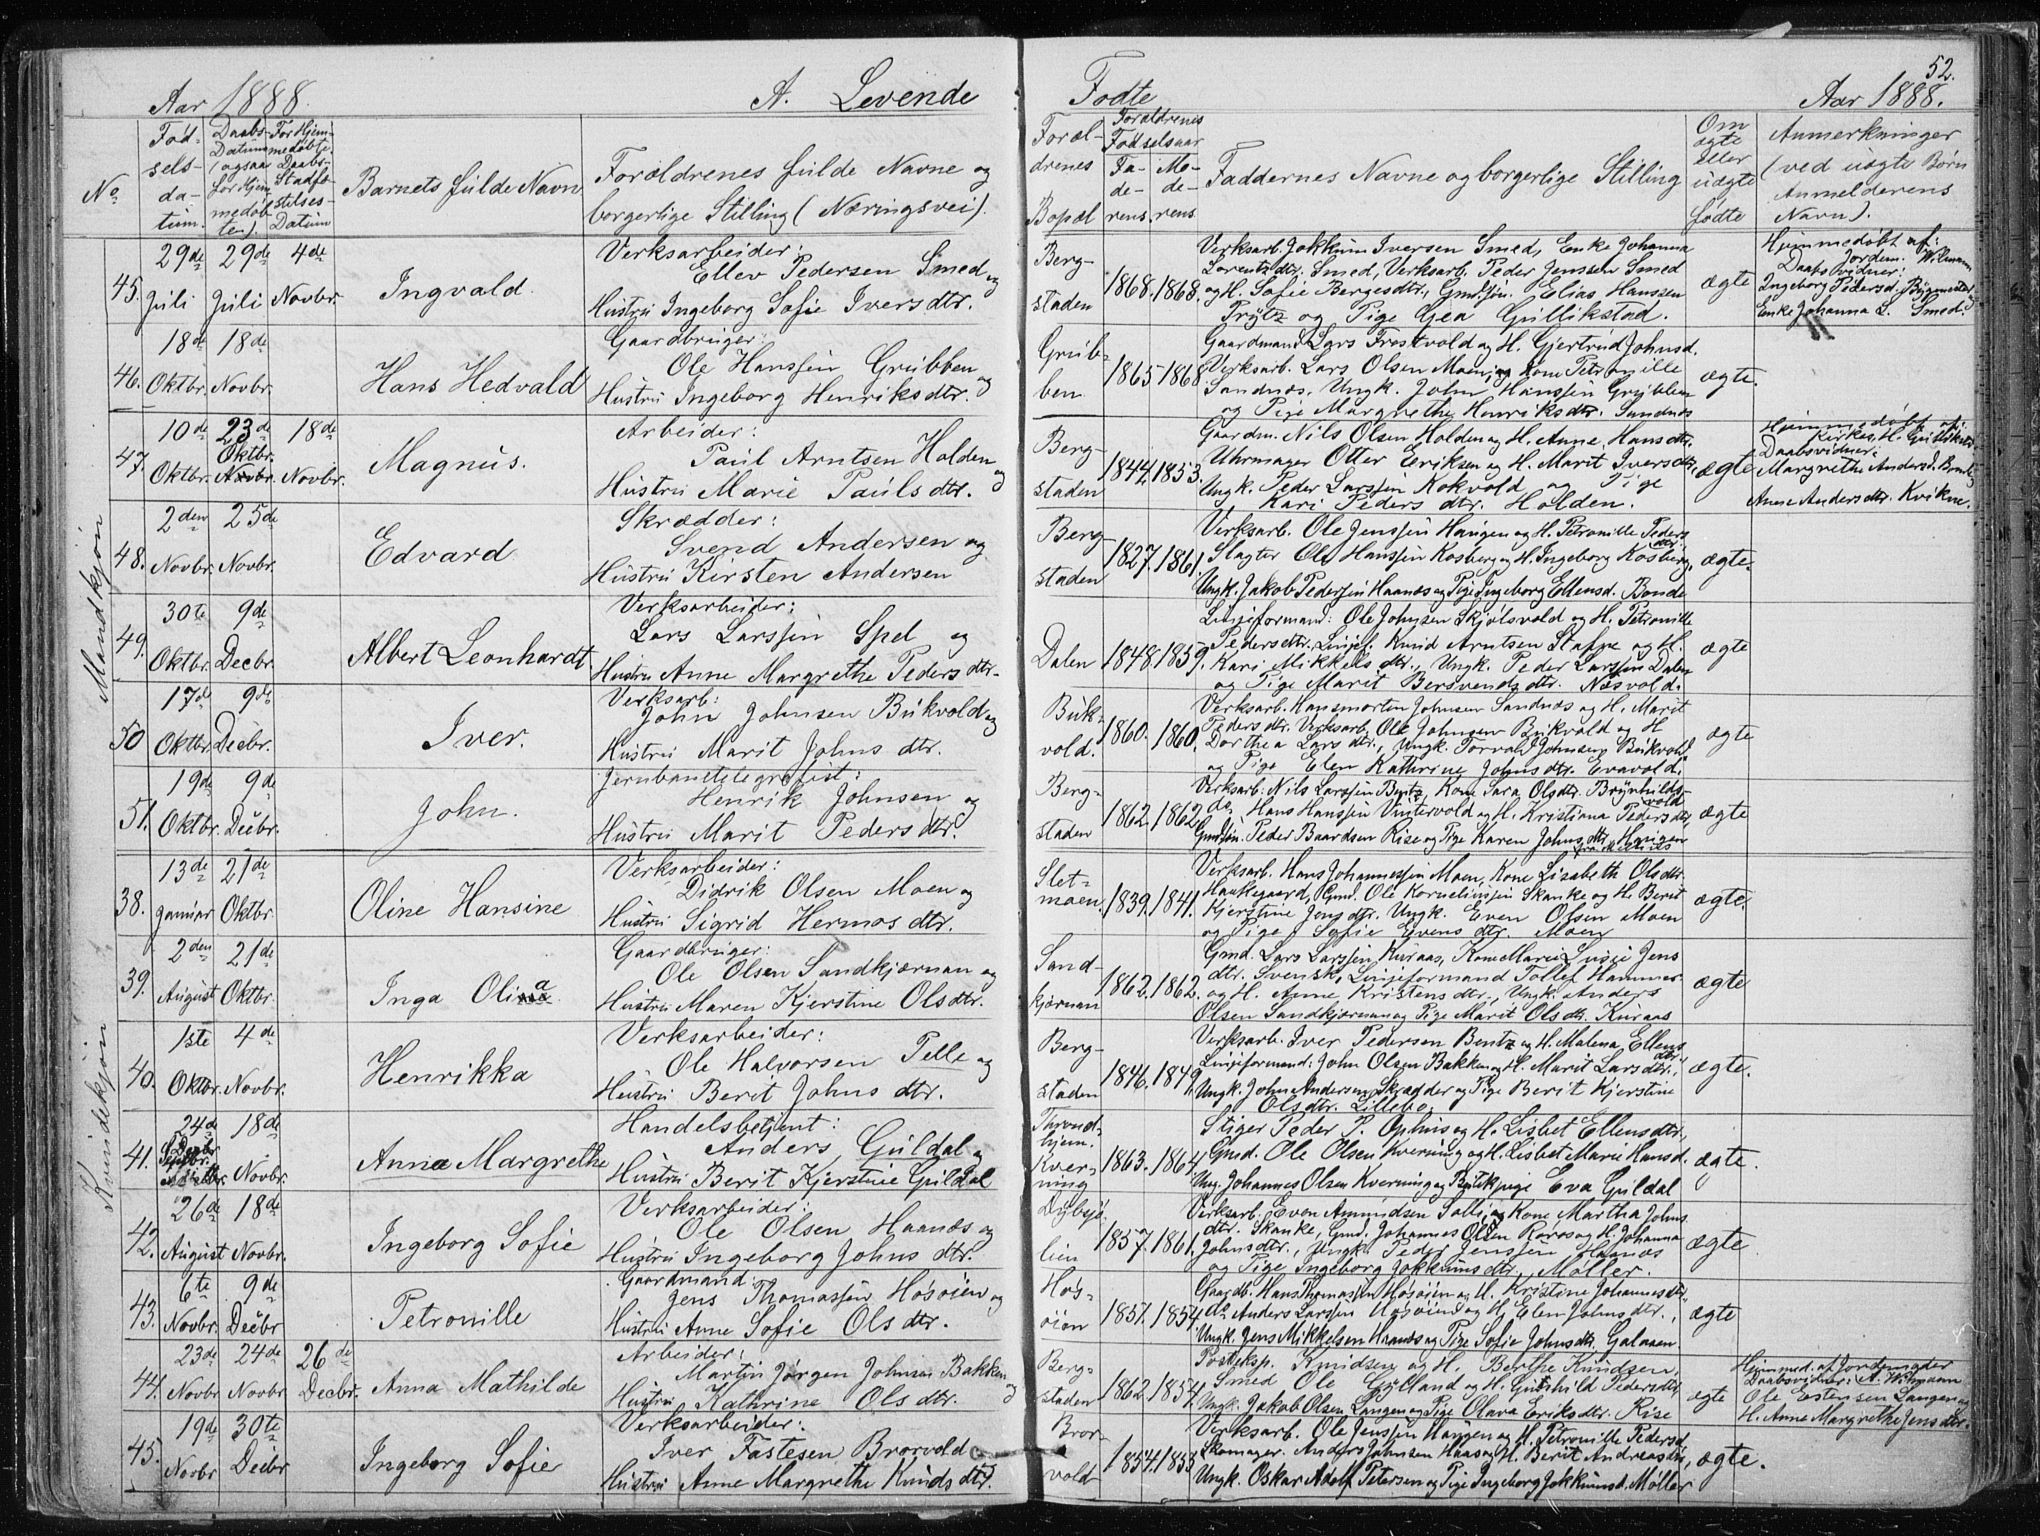 Aar 1888.
A. Levende
Fødte
52.
Aar 1888.
No.
Fød-
sels-
da-
tum.
Daabs-
Datum
(ogsaa
for Hjem
medøb
te).
For Hjem-
medøbte.
Daabs-
Stadfæ-
stilses-
Datum
Barnets fulde Navn
Forældrenes fulde Navne og
borgerlige Stilling (Næringsvei).
Foræl-
drenes
Bopæl
Forældrenes
Fødselsaar
Fa-
de-
rens.
Mo-
de-
rens
Faddernes Navne og borgerlige Stilling
Om
ægte
eller
uægte
fødte
Anmerkninger
(ved uægte Børn
Anmelderens
Navn).
Mandkjøn
45.
29de Juli
29de Juli
4de Novbr.
Ingvald.
Verksarbeider:
Ellev Pedersen Smed og
Hustru Ingeborg Sofie Iversdtr.
Berg-
staden
1868. 1868.
Verksarb. Jokkum Iversen Smed, Enke Johanna
Lorentsdtr. Smed, Verksarb. Peder Jenssen Smed
og H. Sofie Bergesdtr., Gmds.søn. Elias Hanssen
Prytz og Pige Gea Gullikstad.
ægte
Hjemmedøbt af:
Jordem. Wilmann
Daabsvidner:
Ingeborg Pedersd. Bygmester
Enke Johanna L. Smed.
46.
18de Oktbr.
18de Novbr.
Hans Hedvald
Gaardbruger:
Ole Hanssen Grubben og
Hustru Ingeborg Henriksdtr.
Grub-
ben
1865 1868
Gaardmand Lars Frostvold og H. Gjertrud Johnsd.
Verksarb. Lars Olsen Moen, og Kone Petronille
Sandnæs, Ungk. John Hanssen Grubben
og Pige Margrethe Henriksdtr. Sandnæs
ægte.
47.
10de Oktbr.
23de Oktbr. Novbr.
18de Novbr.
Magnus.
Arbeider:
Paul Arntsen Holden og
Hustru Marie Paulsdtr.
Berg-
staden
1844. 1853.
Gaardm. Nils Olsen Holden og H. Anne Hansdtr.
Uhrmager Otter Eriksen og H. Marit Iversdtr,
Ungk. Peder Larssen Kokvold og Pige
Kari Pedersdtr. Holden.
ægte
Hjemmedøbt af:
Kirkes. H. Gullikstad
Daabsvidner.
Margrethe Andersd.
Anne Andersdtr. Kvikne.
48.
2den Novbr.
25de Novbr.
Edvard
Skrædder:
Svend Andersen og
Hustru Kirsten Andersen
Berg-
staden
1827. 1861.
Verksarb. Ole Jenssen Haugen og H. Petronille Peders
dtr.,
Slagter Ole Hanssen Kosberg og H. Ingeborg Kosberg,
Ungk. Jakob Pederssen Haanæs og Pige Ingeborg Ellensd. Bonde
ægte.
49.
30te Oktbr.
9de Decbr.
Albert Leonhardt.
Verksarbeider:
Lars Larssen Spel og
Hustru Anne Margrethe Pedersdtr.
Dalen
1848. 1859.
Linjeformand: Ole Johnsen Skjølsvold og H. Petronille
Pedersdtr. Linjef. Knud Arntsen Stafne og H.
Kari Mikkelsdtr., Ungk. Peder Larssen Dalen
og Pige Marit Bersvendsdtr. Næsvold.
ægte
50
17de Oktbr.
9de Decbr.
Iver.
Verksarb:
John Johnsen Bukvold og
Hustru Marit Johnsdtr.
Buk-
vold.
1860. 1860.
Verksarb. Hansmorten Johnsen Sandnæs og H. Marit
Pedersdtr. Verksarb. Ole Johnsen Bukvold og H.
Dorthea Larsdtr., Ungk. Torvald Johnsen Bukvold
og Pige Elen Kathrine Johnsdtr. Evavold.
ægte
51.
19de Oktbr.
9de Decbr.
John.
Jernbanetelegrafist:
Henrik Johnsen og
Hustru Marit Pedersdtr.
Berg-
staden
1862. 1862.
Verksarb: Nils Larssen Bentz, Kone Sara Olsdtr. Brynhilds-
vold
do. Hans Hanssen Vintervold og H. Kristiana Pedersdtr,
Gmdsøn. Peder Baardsen Rise og Pige Karen Johnsdtr. Haugen
ægte
Kvindekjøn
38.
13de Januar
21de Oktbr.
Oline Hansine
Verksarbeider:
Didrik Olsen Moen og
Hustru Sigrid Hermosdtr.
Slet-
moen.
1839. 1841.
Verksarb. Hans Johannessen Moen, Kone Lisabeth Olsdtr.
Haukegaard, Gmd. Ole Korneliussen Skanke og H. Berit
Kjerstine Jonsdtr. Ungk. Even Olsen Moen
og Pige Sofie Evensdtr. Moen
ægte.
39.
2den August
21de Oktbr.
Inga Olina
Gaardbruger:
Ole Olsen Sandkjærnan og
Hustru Maren Kjerstine Olsdtr.
Sand-
kjærnan
1862. 1862.
Gmd. Lars Larssen Kuraas, Kone Marie Lusie Jens
dtr. Svensk, Linjeformand Tollef Hammer
og H. Anne Kristensdtr., Ungk. Anders
Olsen Sandkjærnan og Pige Marit Olsdtr. Kuraas
ægte
40.
1ste Oktbr.
4de Novbr.
Henrikka
Verksarbeider:
Ole Halvorsen Pelle og
Hustru Berit Johnsdtr.
Berg-
staden
1846. 1849.
Verksarb. Iver Pedersen Bentz og H. Malena Ellens
dtr.,
Linjeformand: John Olsen Bakken og H. Marit Larsdtr.,
Ungk. John Andersen, Skrædder og Pige Berit Kjerstine
Olsdtr. Lillebo.
ægte.
41.
24de
18de Novbr.
Anna Margrethe
Handelsbetjent:
Anders Guldal og
Hustru Berit Kjerstine Guldal
Thrond-
hjem.
Kver-
ning
1863. 1864
Stiger Peder P. Ophus og H. Lisbet Ellensdtr.,
Gmd. Ole Olsen Kverning og H. Lisbet Marie Hansd.
Ung. Johannes Olsen Kverning og Butikpige Eva Guldal
ægte.
42.
26de August
18de Novbr.
Ingeborg Sofie
Verksarbeider:
Ole Olsen Haanæs og
Hustru Ingeborg Johnsdtr.
Dybsjø
lien
1857. 1861.
Verksarb. Even Amundsen Solli, og Kone Martha Johns
dtr. Skanke, Gmd. Johannes Olsen Røros og H. Johanna
Johnsdtr., Ungk. Peder Jenssen Haanæs
og Pige Ingeborg Jokkumsdtr. Møller.
ægte
43.
6te Novbr.
9de Decbr
Petronille
Gaardmand:
Jens Thomassen Høsøien og
Hustru Anne Sofie Olsdtr.
Høs-
øien
1851. 1854.
Gaardb. Hans Thomassen Høsøien og H. Kristine Johannesdtr.
do. Anders Larssen Høsøien og H. Elen Johnsdtr.,
Ungk. Jens Mikkelsen Haanæs og Pige Sofie Johnsdtr. Galaaen
ægte
44.
23de Novbr
24de Novbr
26de Decbr.
Anna Mathilde
Arbeider:
Martin Jørgen Johnsen Bakken og
Hustru Kathrine Olsdtr.
Berg-
staden
1862. 1854.
Posteksp. Knudsen og H. Berthe Knudsen,
Smed Ole Gylland og H. Gunhild Pedersdtr.
Ungk. Jakob Olsen Langen og Pige Olava Eriksdtr. Rise
ægte
Hjemmed. af Jordemoder
Daabsvidner: A. Wilmann
Ole Estensen Langen og
H. Anne Margrethe Jensdtr.
45.
19de Novbr
30te Decbr
Ingeborg Sofie
Verksarbeider:
Iver Fastesen Brorvold
Hustru Anne Margrethe Knudsdtr.
Bror-
vold
1854. 1853
Verksarb. Ole Jenssen Haugen og H. Petronille Pedersd
Skomager. Anders Johnsen Haas og H. Berit Andreasdtr,
Ungk. Oskar Adolf Petersen og Pige Ingeborg Jokkumsd. Møller
ægte.